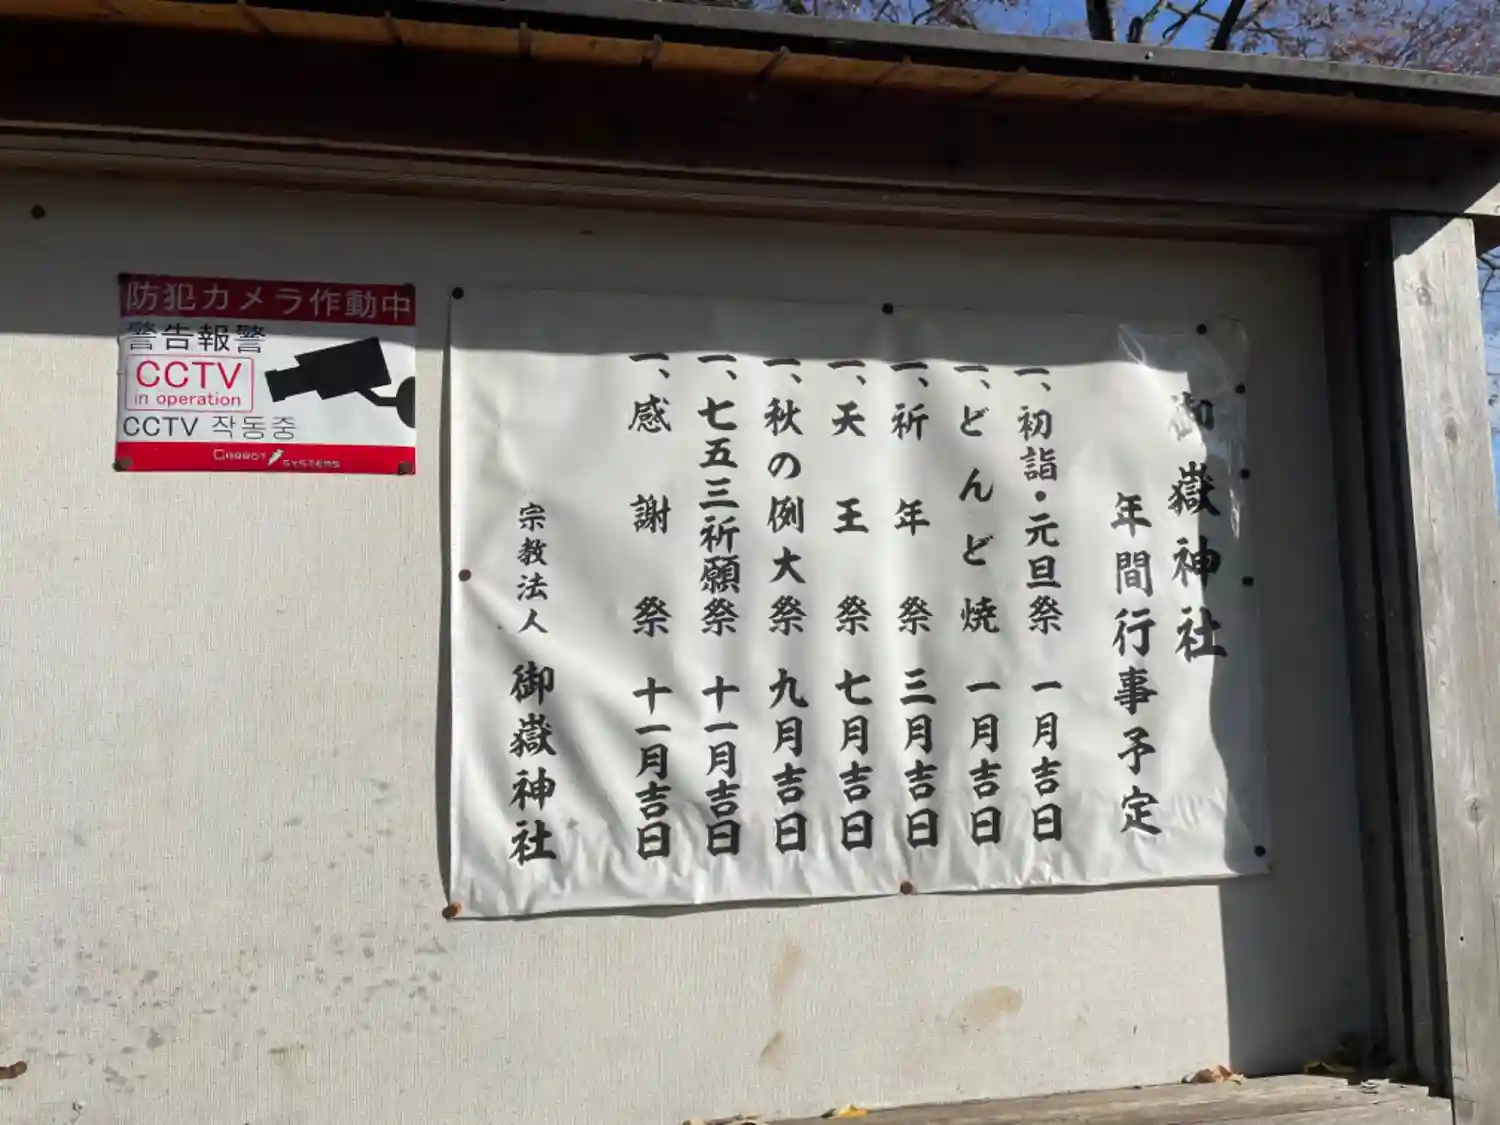 防犯カメラ作動中
警告報警
CCTV
in operation
CCTV 작동중
CARROT SYSTEMS
御嶽神社
年間行事予定
一、初詣・元旦祭 一月吉日
一、どんど焼 一月吉日
一、祈年祭 三月吉日
一、天王祭 七月吉日
一、秋の例大祭 九月吉日
一、七五三祈願祭 十一月吉日
一、感謝祭 十一月吉日
宗教法人 御嶽神社